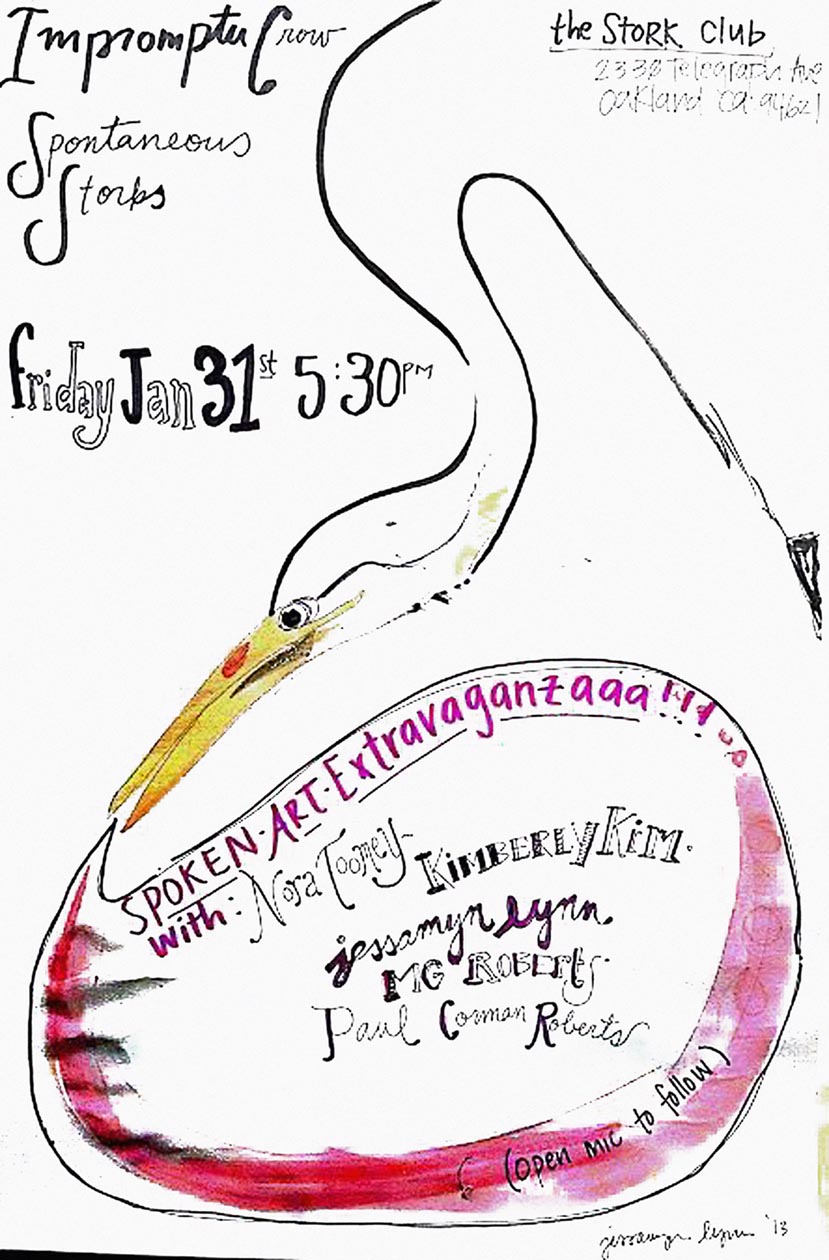 Impromptu Crow
Spontaneous
Storks
the Stork Club
2330 Telegraph Ave
Oakland Ca. 94621
Friday Jan 31st 5:30PM
SPOKEN·ART·Extravaganzaaa
with: Nora Toomey·
KIMBERLY KIM.
jessamyn lynn.
MG ROBERTS·
Paul Corman Roberts
(open mic to follow)
jessamyn lynn '13